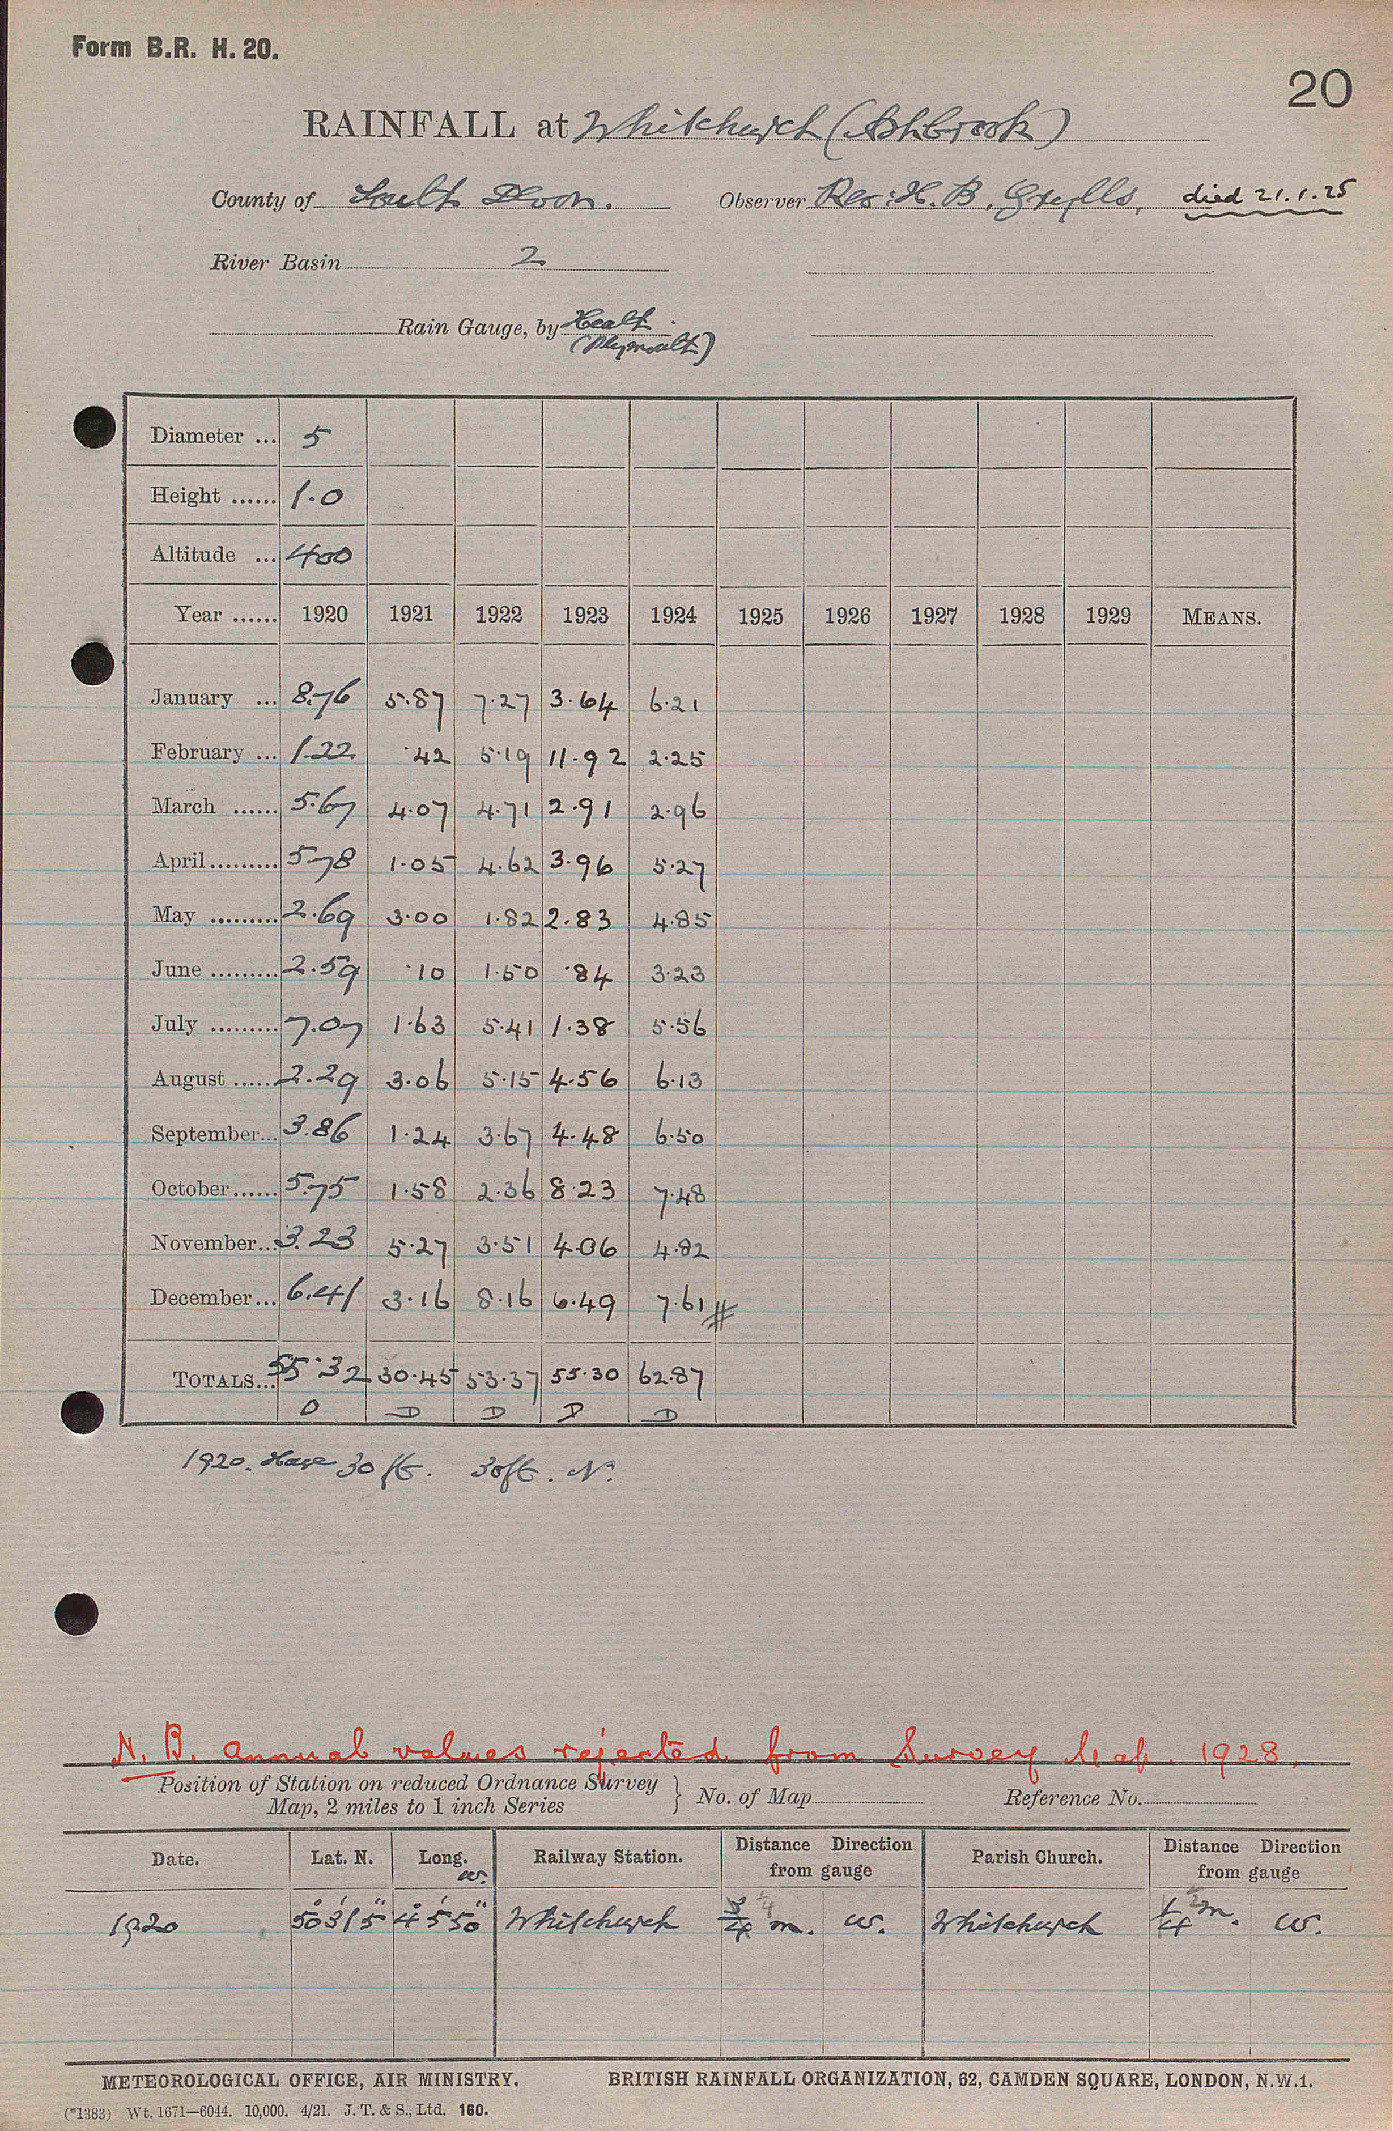 Form B.R. H. 20.
20
RAINFALL at Whitchurch (Ashbrook)
County of South Devon. Observer Rev. H. B. Grylls, died 21.1.25
River Basin 2
Rain Gauge, by Heath.
(Plymouth)
Diameter ... 5
Height ...... 1.0
Altitude ... 400
Year ...... 1920 1921 1922 1923 1924 1925 1926 1927 1928 1929 MEANS.
January ... 8.76 5.87 7.27 3.64 6.21
February ... 1.22 .42 5.19 11.92 2.25
March ...... 5.67 4.07 4.71 2.91 2.96
April......... 5.78 1.05 4.62 3.96 5.27
May ......... 2.69 3.00 1.82 2.83 4.85
June ......... 2.59 .10 1.50 .84 3.23
July ......... 7.07 1.63 5.41 1.38 5.56
August ...... 2.29 3.06 5.15 4.56 6.13
September... 3.86 1.24 3.67 4.48 6.50
October...... 5.75 1.58 2.36 8.23 7.48
November... 3.23 5.27 3.51 4.06 4.82
December... 6.41 3.16 8.16 6.49 7.61 #
TOTALS... 55.32 30.45 53.37 55.30 62.87
D D D D D
1920. 30 ft. 30ft. N.
N.B. Annual values rejected from Survey Map. 1928.
Position of Station on reduced Ordnance Survey
Map, 2 miles to 1 inch Series } No. of Map Reference No.
Date. Lat. N. Long. W. Railway Station. Distance Direction from gauge Parish Church. Distance Direction from gauge
1920 50° 31' 5" 4° 5' 50" Whitchurch 3/4 m. W. Whitchurch 1/4 m. W.
METEOROLOGICAL OFFICE, AIR MINISTRY. BRITISH RAINFALL ORGANIZATION, 62, CAMDEN SQUARE, LONDON, N.W.1.
(*1383) Wt. 1671—6044. 10,000. 4/21. J. T. & S., Ltd. 160.